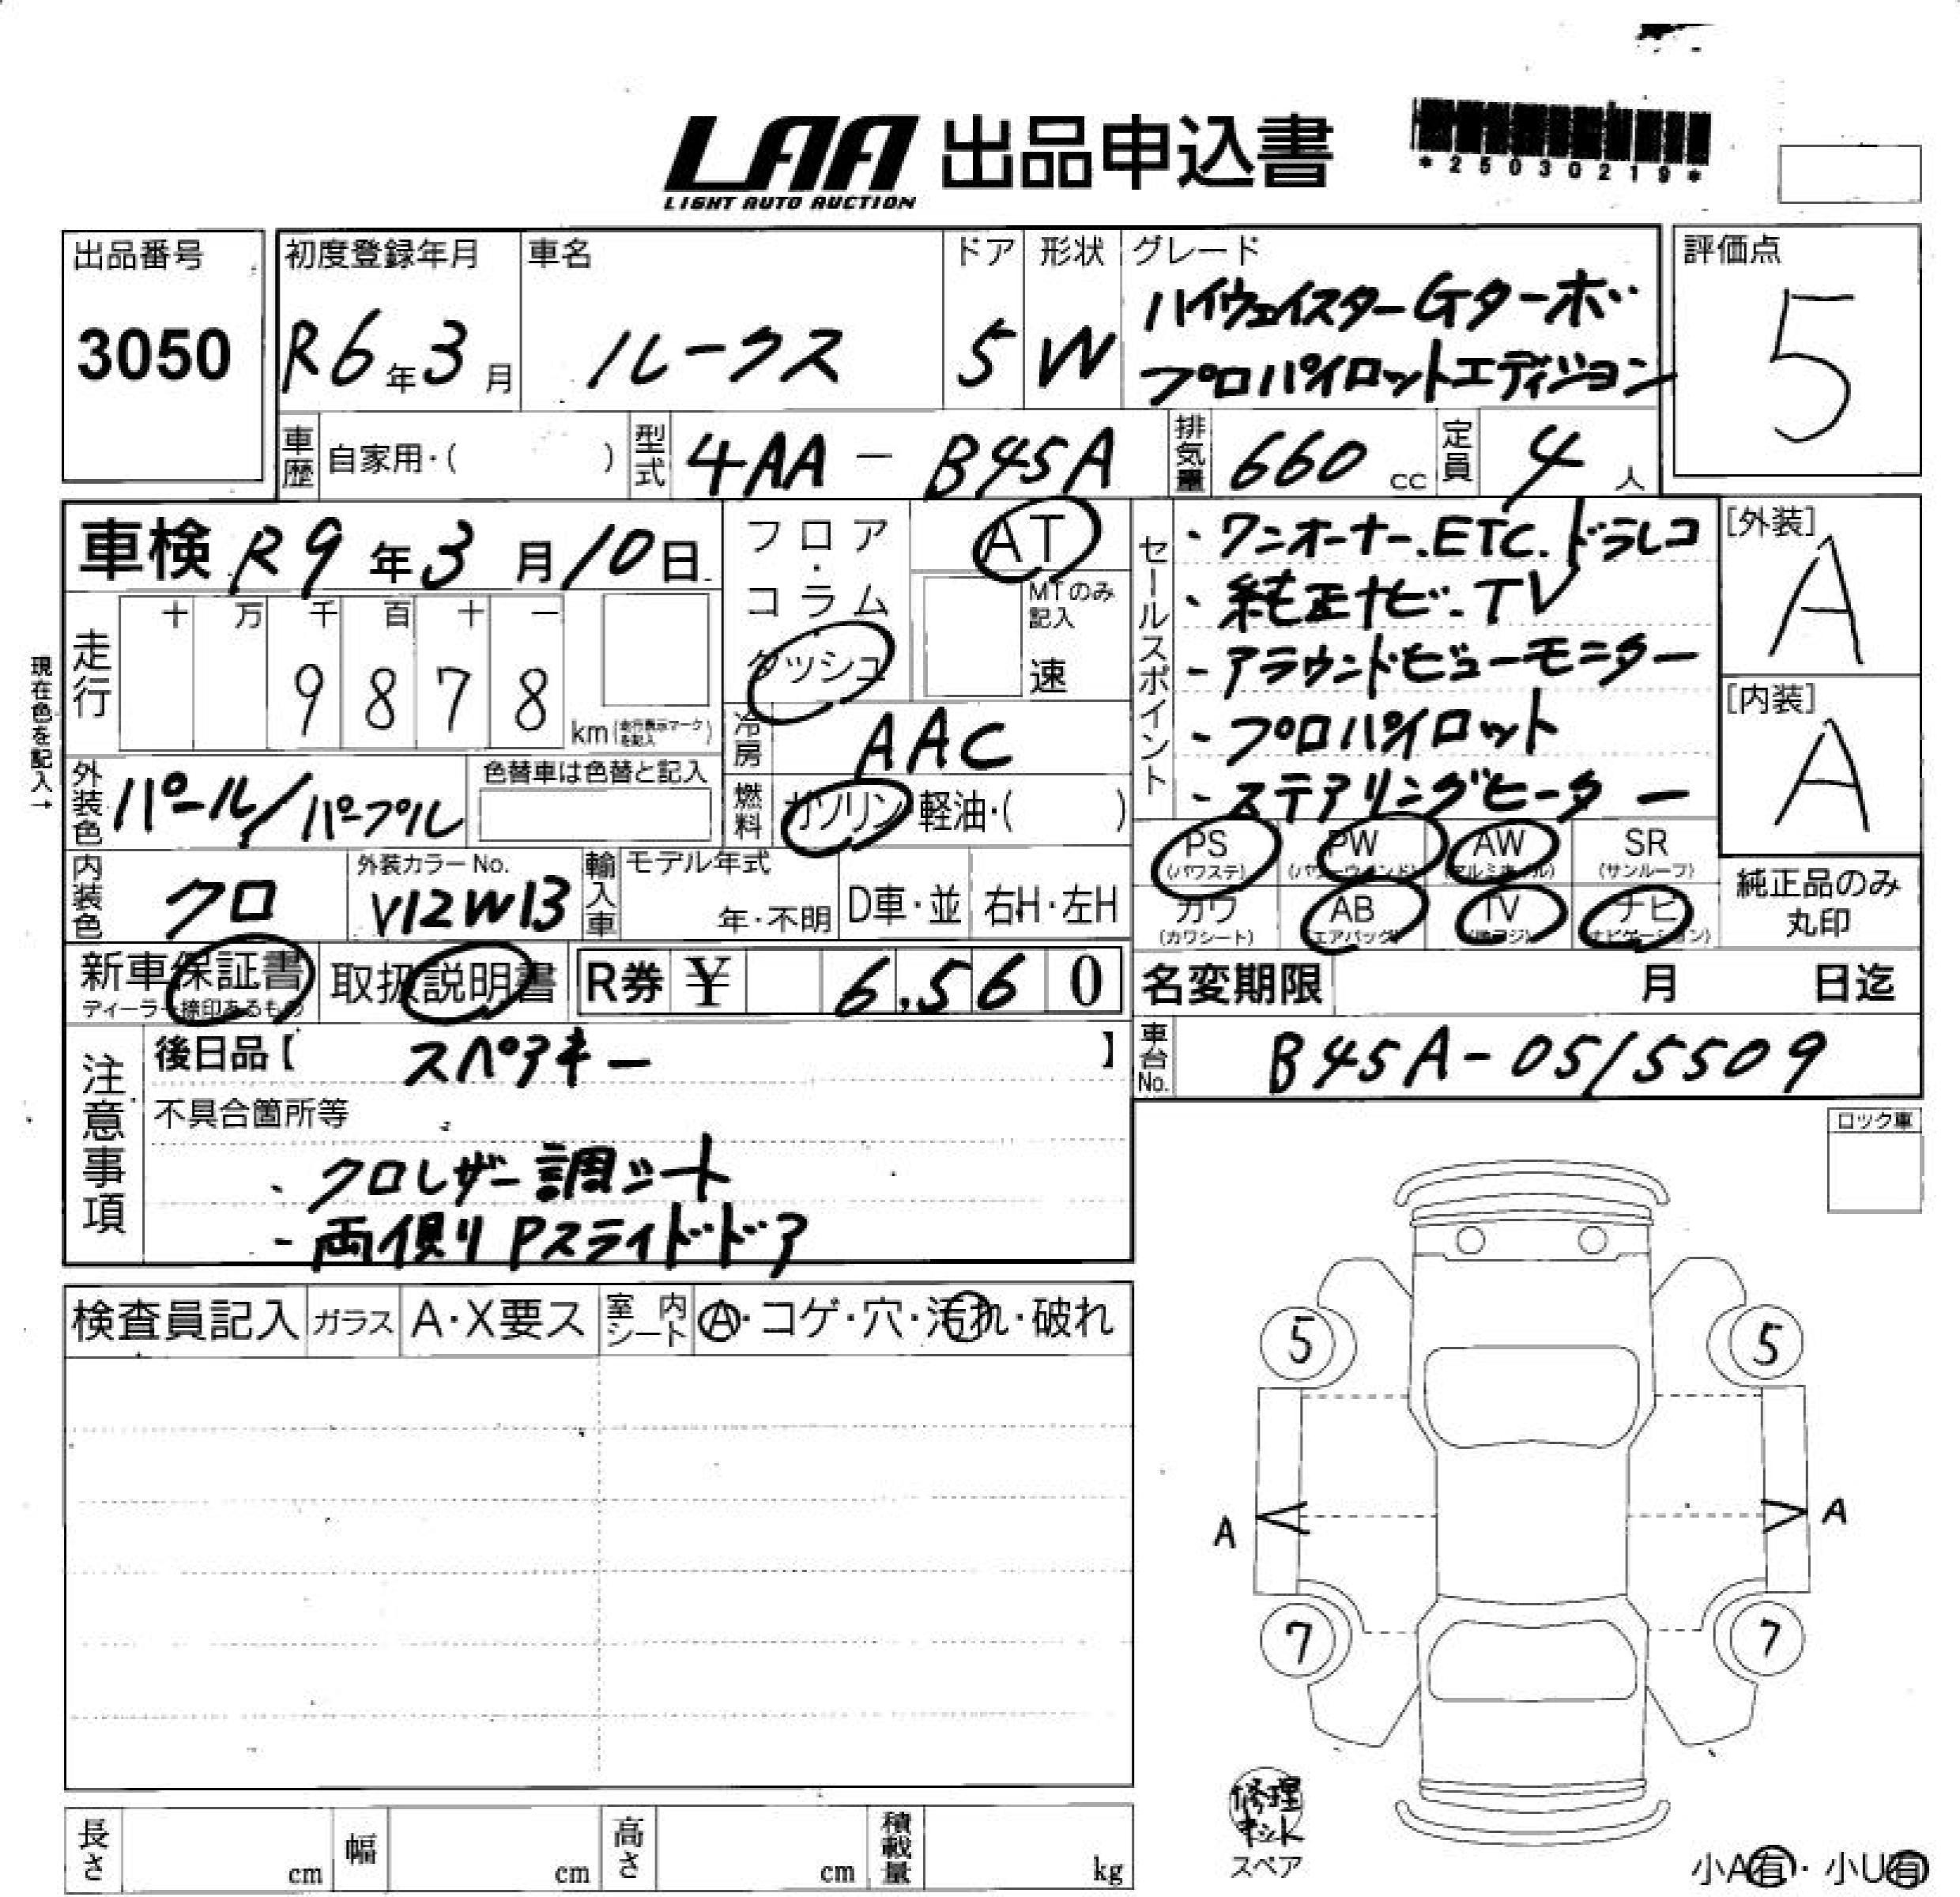 LAA 出品申込書
LIGHT AUTO AUCTION
*25030219*
出品番号
3050
初度登録年月
R6年3月
車名
ルークス
ドア
5
形状
W
グレード
ハイウェイスターGターボ
プロパイロットエディション
評価点
5
車歴 自家用・( )
型式 4AA - B45A
排気量 660 cc
定員 4 人
車検 R9年3月10日
走行 十 万 千 百 十 一
9 8 7 8 km (走行表示マークを記入)
現在色を記入→
フロア・コラム
ダッシュ
AT
MTのみ記入
速
冷房 AAC
燃料 ガソリン・軽油・( )
セールスポイント
・ワンオーナー、ETC、ドラレコ
・純正ナビ、TV
・アラウンドビューモニター
・プロパイロット
・ステアリングヒーター
[外装]
A
[内装]
A
外装色 パール/パープル
色替車は色替と記入
内装色 クロ
外装カラーNo.
V12W13
輸入車
モデル年式
年・不明
D車・並
右H・左H
PS (パワステ)
PW (パワーウインド)
AW (アルミホイル)
SR (サンルーフ)
カワ (カワシート)
AB (エアバック)
TV
ナビ (ナビゲーション)
純正品のみ
丸印
新車保証書
ディーラー捺印あるもの
取扱説明書
R券 ¥ 6,560
名変期限 月 日迄
車台No. B45A-0515509
注意事項
後日品【 スペアキー 】
不具合箇所等
・クロレザー調シート
・両側Pスライドドア
ロック車
検査員記入
ガラス A・X要ス
室内シート A・コゲ・穴・汚れ・破れ
5 5
A A
7 7
修理
キット
スペア
小A有・小U有
長さ cm
幅 cm
高さ cm
積載量 kg